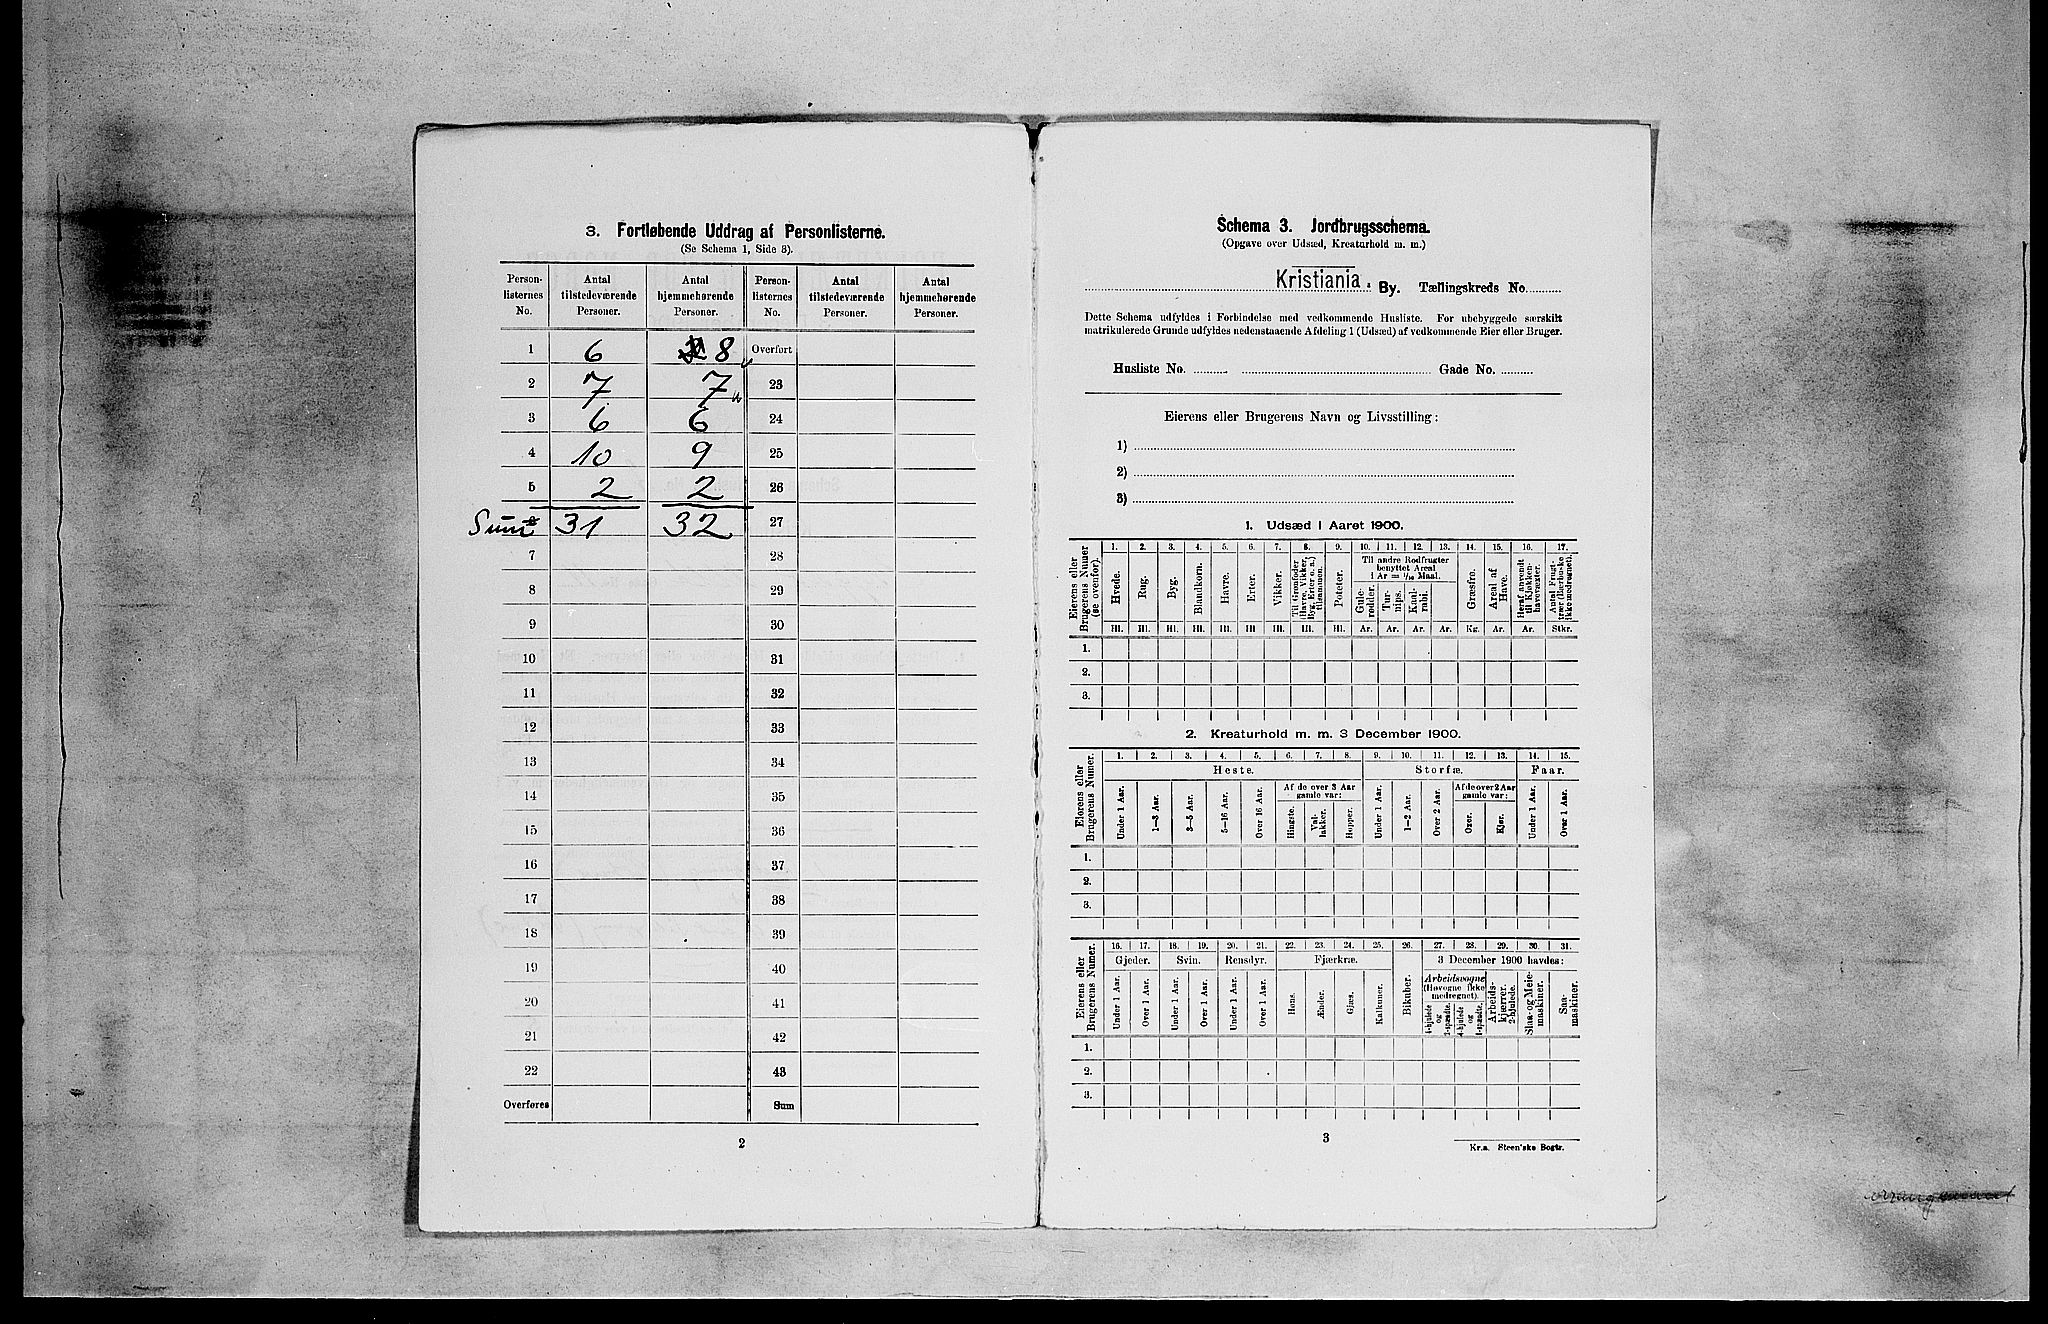 3. Fortløbende Uddrag af Personlisterne.
(Se Schema 1, Side 3).
Person-listernes No. Antal tilstedeværende Personer. Antal hjemmehørende Personer. Person-listernes No. Antal tilstedeværende Personer. Antal hjemmehørende Personer.
1 6 8 Overført
2 7 7 23
3 6 6 24
4 10 9 25
5 2 2 26
Sum 31 32 27
7 28
8 29
9 30
10 31
11 32
12 33
13 34
14 35
15 36
16 37
17 38
18 39
19 40
20 41
21 42
22 43
Overføres Sum
2
Schema 3. Jordbrugsschema.
(Opgave over Udsæd, Kreaturhold m. m.)
Kristiania. By. Tællingskreds No.
Dette Schema udfyldes i Forbindelse med vedkommende Husliste. For ubebyggede særskilt
matrikulerede Grunde udfyldes nedenstaaende Afdeling 1 (Udsæd) af vedkommende Eier eller Bruger.
Husliste No. Gade No.
Eierens eller Brugerens Navn og Livsstilling:
1)
2)
3)
1. Udsæd i Aaret 1900.
Eierens eller Brugerens Numer (se ovenfor).
1. 2. 3. 4. 5. 6. 7. 8. 9. 10. 11. 12. 13. 14. 15. 16. 17.
Hvede. Rug. Byg. Blandkorn. Havre. Erter. Vikker. Til Grønfoder (Havre, Vikker, Byg, Erter o. a.) tilsammen. Poteter. Til andre Rodfrugter benyttet Areal i Ar = 1/10 Maal. Gule-rødder. Tur-nips. Kaal-rabi. Græsfrø. Areal af Have. Heraf anvendt til Kjøkken-havevæxter. Antal Frugt-trær (Bærbuske ikke medregnet).
Hl. Hl. Hl. Hl. Hl. Hl. Hl. Hl. Hl. Ar. Ar. Ar. Ar. Kg. Ar. Ar. Stkr.
1.
2.
3.
2. Kreaturhold m. m. 3 December 1900.
Eierens eller Brugerens Numer.
1. 2. 3. 4. 5. 6. 7. 8. 9. 10. 11. 12. 13. 14. 15.
Heste. Storfæ. Faar.
Under 1 Aar. 1–3 Aar. 3–5 Aar. 5–16 Aar. Over 16 Aar. Af de over 3 Aar gamle var: Hingste. Val-lakker. Hopper. Under 1 Aar. 1–2 Aar. Over 2 Aar. Af de over 2 Aar gamle var: Oxer. Kjør. Under 1 Aar. Over 1 Aar.
1.
2.
3.
Eierens eller Brugerens Numer.
16. 17. 18. 19. 20. 21. 22. 23. 24. 25. 26. 27. 28. 29. 30. 31.
Gjeder. Svin. Rensdyr. Fjærkræ. Bikuber. 3 December 1900 havdes:
Under 1 Aar. Over 1 Aar. Under 1 Aar. Over 1 Aar. Under 1 Aar. Over 1 Aar. Høns. Ænder. Gjæs. Kalkuner. Arbeidsvogne (Høvogne ikke medregnet). 4-hjulede og 2-spændte. 4-hjulede og 1-spændte. Arbeids-kjærrer, 2-hjulede. Slaa- og Meie-maskiner. Saa-maskiner.
1.
2.
3.
3
Kr.a. Steen'ske Bogtr.